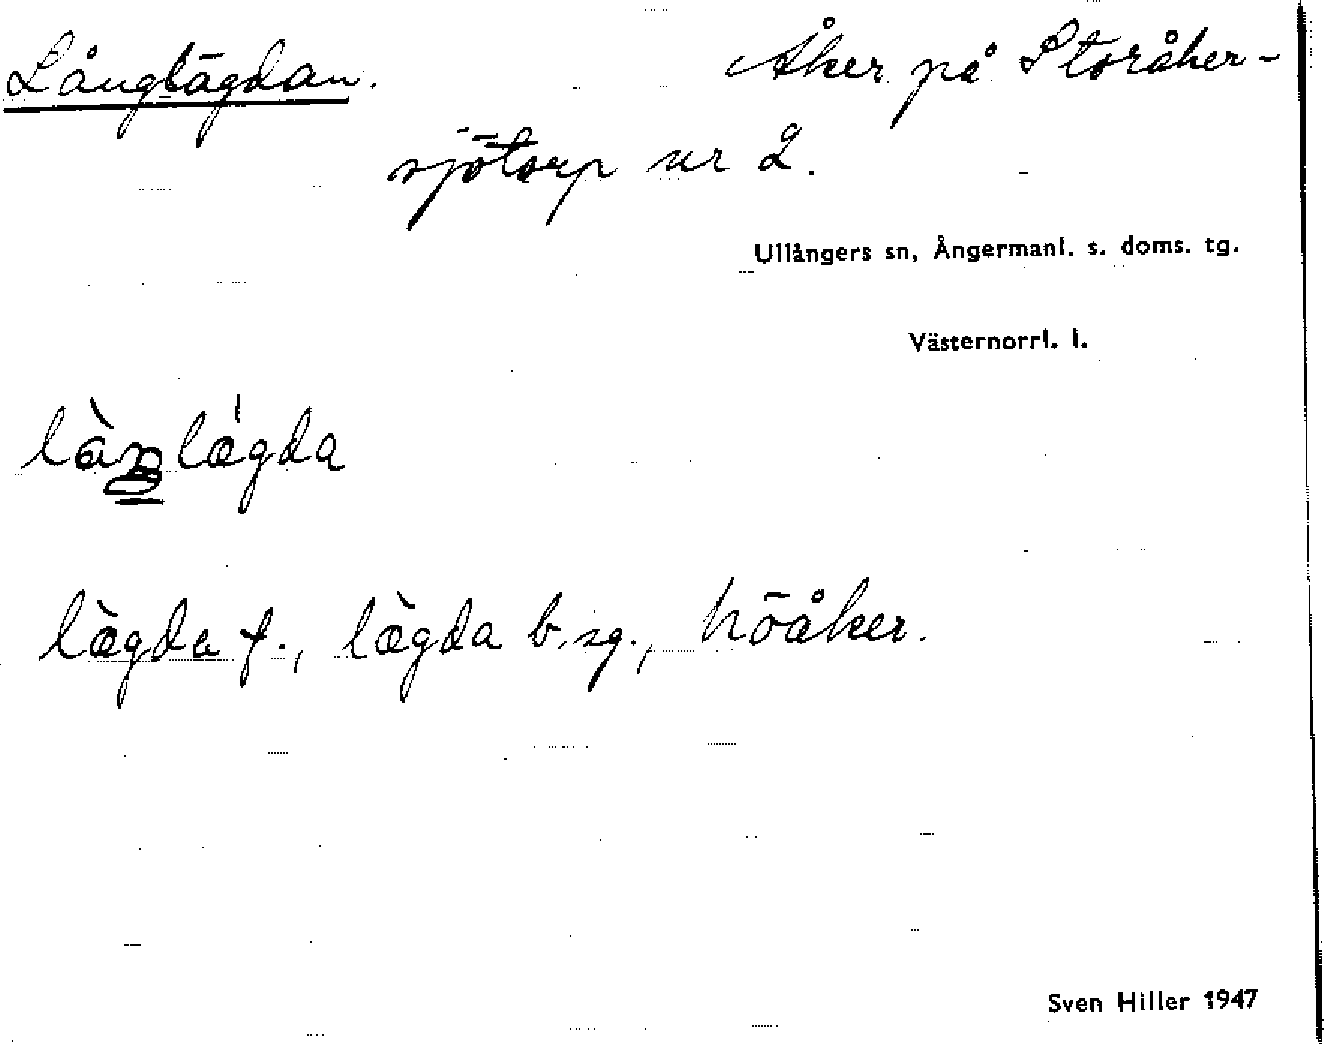 Långlägdan. Åker på Storåker-
sjötorp nr 2.
Ullångers sn, Ångermanl. s. doms. tg.
Västernorrl. l.
lægda f., lægda b. sg., höåker.
Sven Hiller 1947